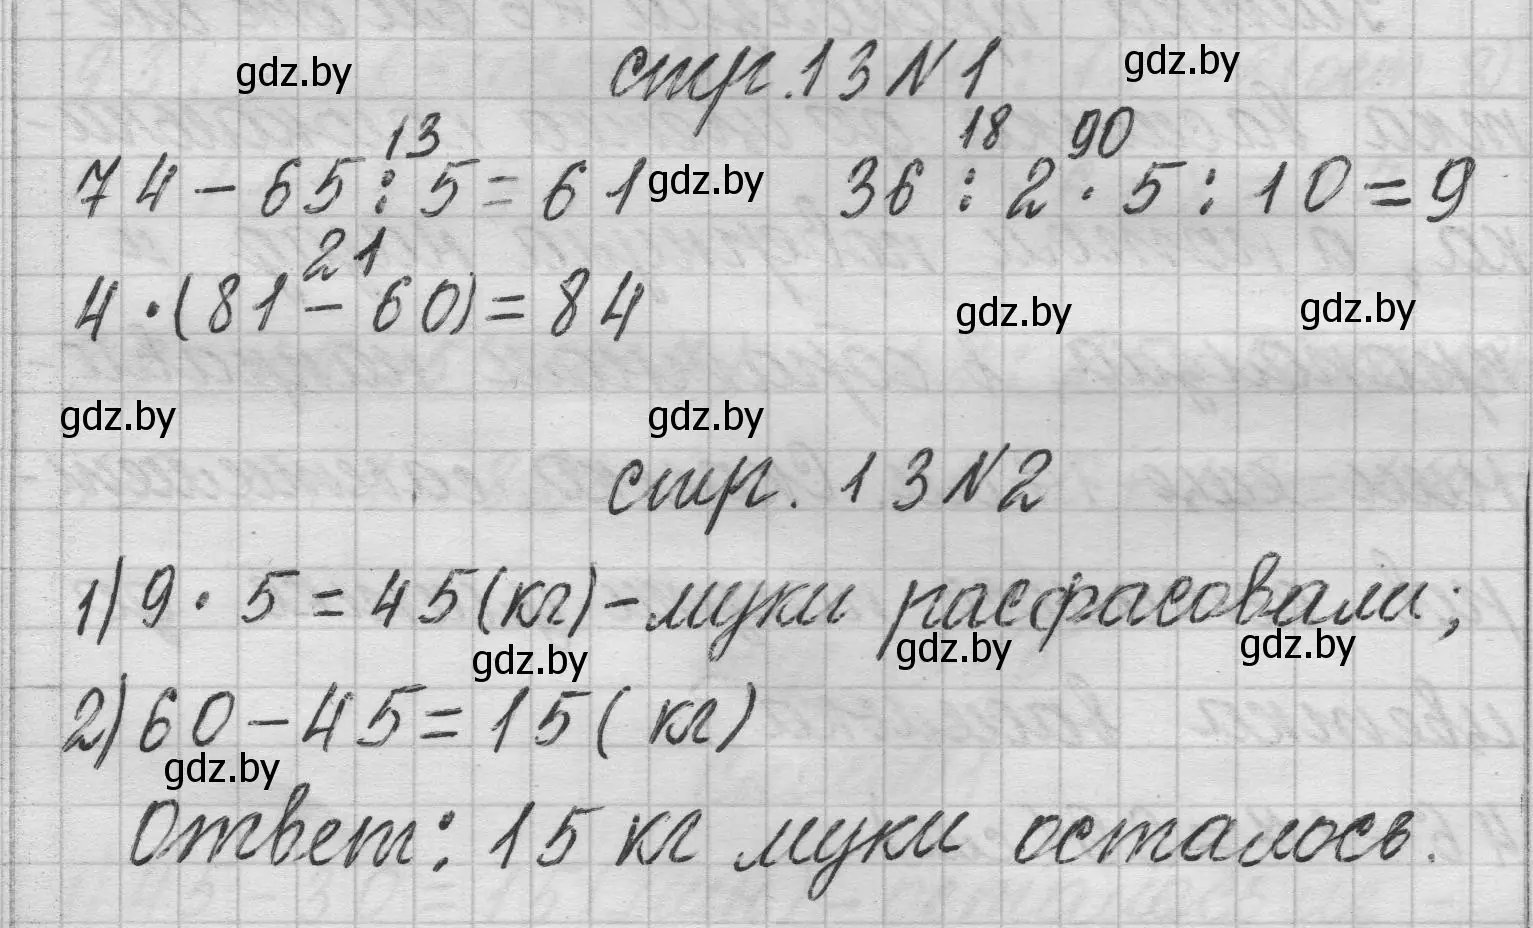 gdz.by стр. 13 N 1 gdz.by
13 18 90
74 - 65 : 5 = 61 gdz.by 36 : 2 · 5 : 10 = 9
21
4 · (81 - 60) = 84 gdz.by gdz.by
gdz.by gdz.by
стр. 13 N 2
1) 9 · 5 = 45 (кг) - муки расфасовали;
gdz.by gdz.by gdz.by
2) 60 - 45 = 15 (кг)
gdz.by
Ответ: 15 кг муки осталось.